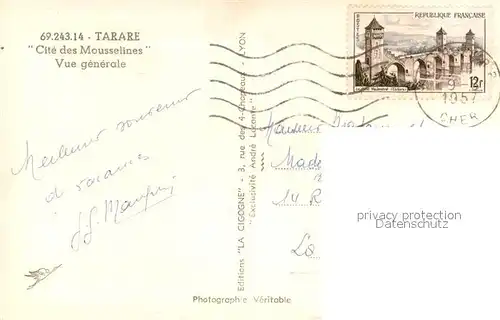 69.243.14 - TARARE
"Cité des Mousselines"
Vue générale
Meilleur souvenir
de vacances
Editions "LA CIGOGNE" - 3, rue des 4-Chapeaux - LYON
"Exclusivité André Lacomte"
Photographie Véritable
REPUBLIQUE FRANÇAISE
12f
1957
CHER
Monsieur
Made
14 R
La
privacy protection
Datenschutz